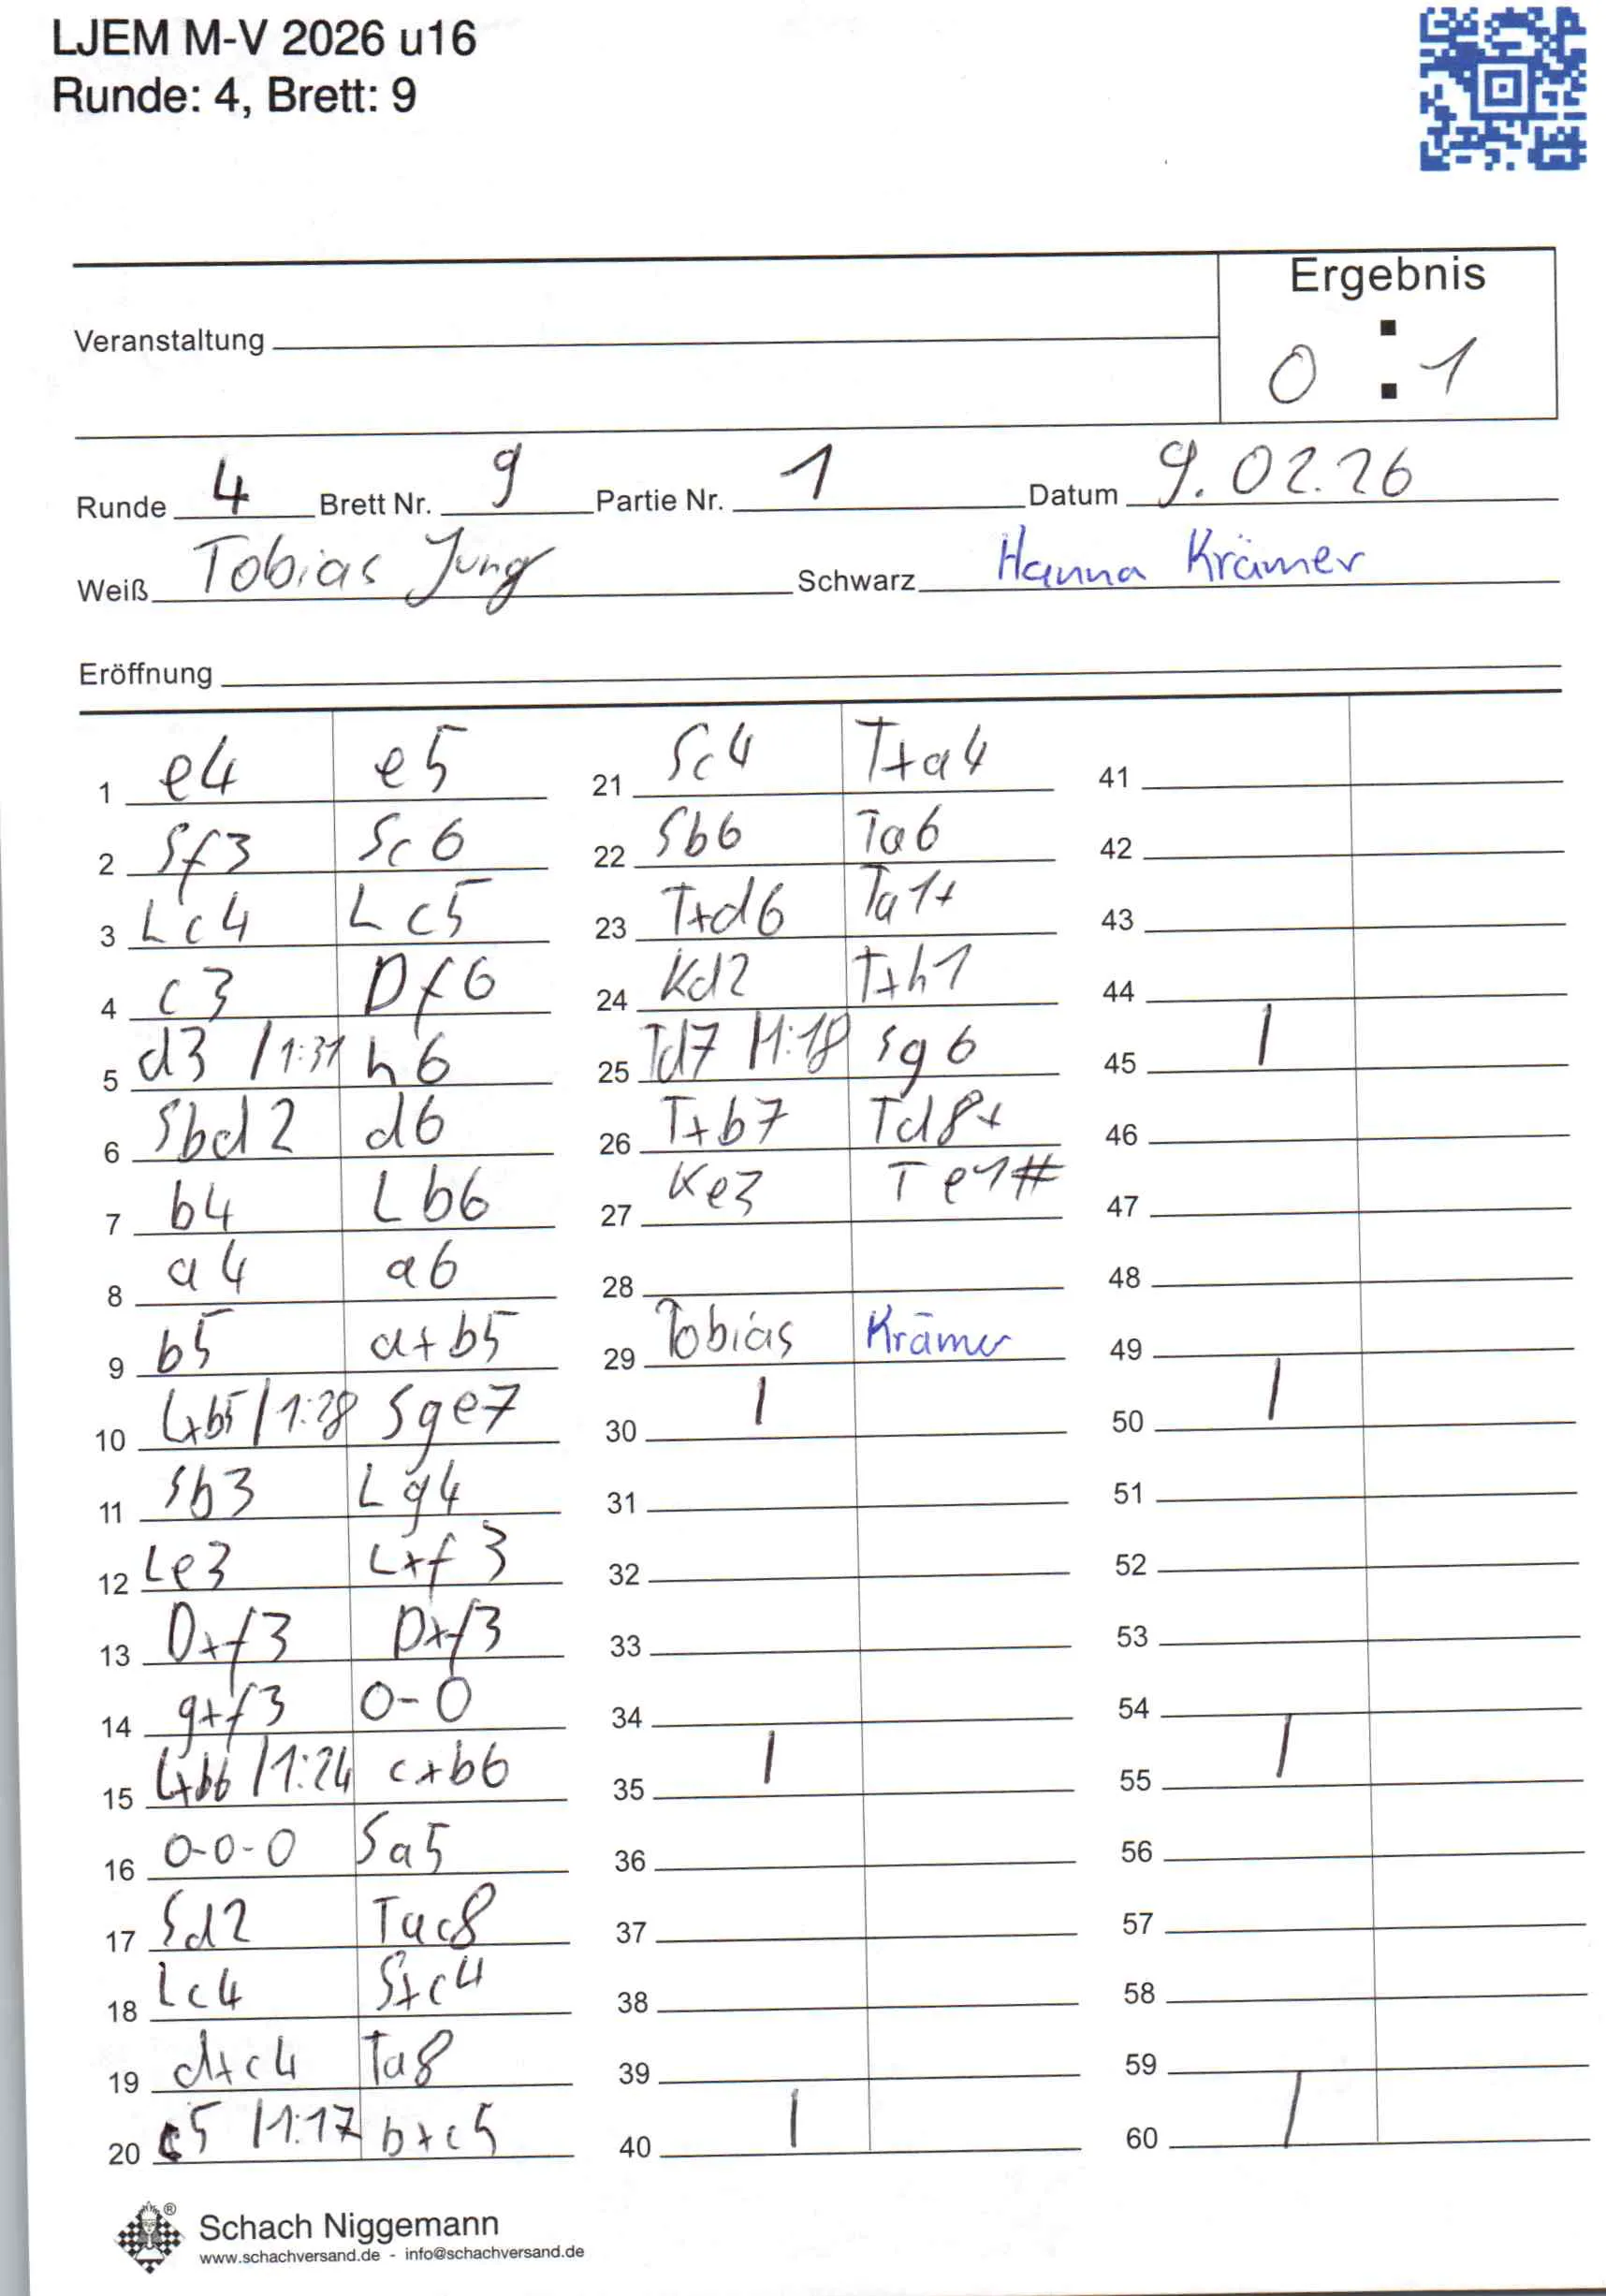 LJEM M-V 2026 u16
Runde: 4, Brett: 9
Ergebnis
Veranstaltung
0 : 1
Runde 4 Brett Nr. 9 Partie Nr. 1 Datum 9.02.26
Weiß Tobias Jung Schwarz Hanna Krämer
Eröffnung
1 e4 e5
2 Sf3 Sc6
3 Lc4 Lc5
4 c3 Df6
5 d3 /1:31 h6
6 Sbd2 d6
7 b4 Lb6
8 a4 a6
9 b5 a+b5
10 L+b5 /1:28 Sge7
11 Sb3 Lg4
12 Le3 L+f3
13 D+f3 D+f3
14 g+f3 0-0
15 L+b6 /1:24 c+b6
16 0-0-0 Sa5
17 Sd2 Tac8
18 Lc4 S+c4
19 d+c4 Ta8
20 c5 /1:17 b+c5
21 Sc4 T+a4
22 Sb6 Ta6
23 T+d6 Ta1+
24 Kd2 T+h1
25 Td7 /1:18 Sg6
26 T+b7 Td8+
27 Ke3 Te1#
28
29 Tobias Krämer
30 /
31
32
33
34
35 /
36
37
38
39
40 /
41
42
43
44
45 /
46
47
48
49
50 /
51
52
53
54
55 /
56
57
58
59
60 /
Schach Niggemann ®
www.schachversand.de - info@schachversand.de